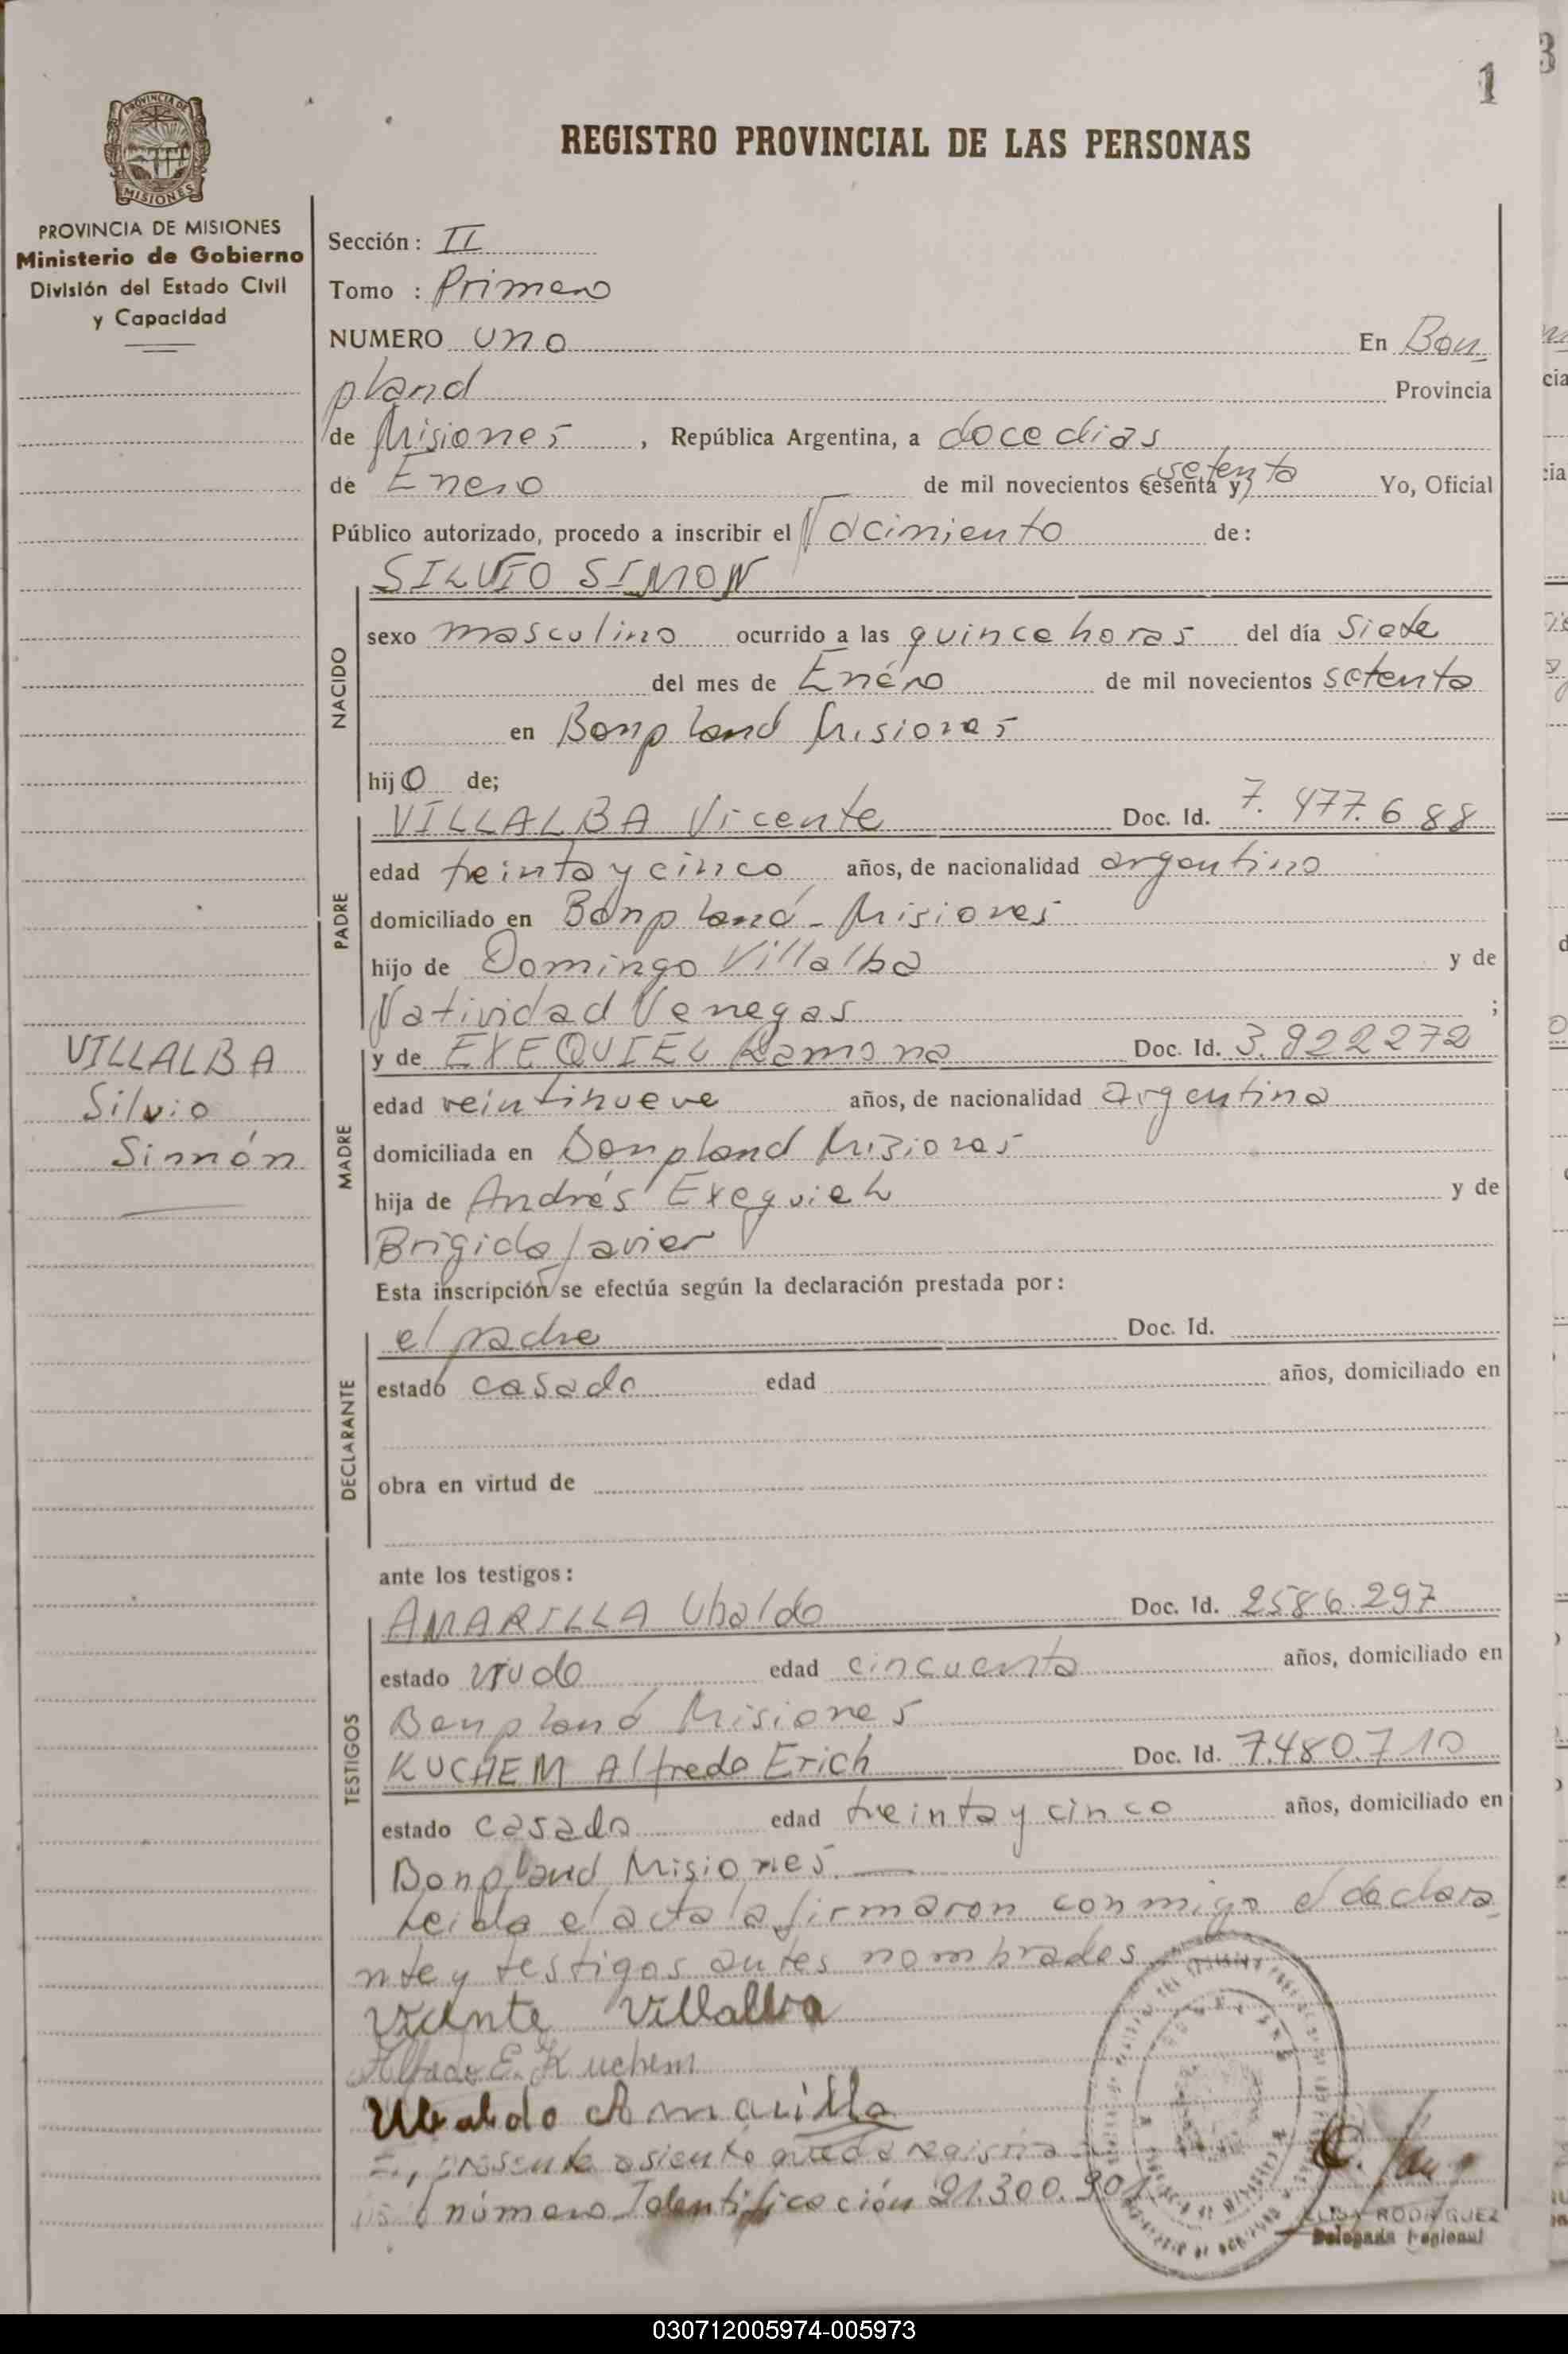 1
REGISTRO PROVINCIAL DE LAS PERSONAS
PROVINCIA DE
MISIONES
PROVINCIA DE MISIONES
Ministerio de Gobierno
División del Estado Civil
y Capacidad
Sección: II
Tomo : Primero
NUMERO uno En Bon
pland Provincia
de Misiones, República Argentina, a doce dias
de Enero de mil novecientos sesenta y setenta Yo, Oficial
Público autorizado, procedo a inscribir el Nacimiento de:
SILVIO SIMON
NACIDO
sexo masculino ocurrido a las quince horas del día siete
del mes de Enero de mil novecientos setenta
en Bonpland Misiones
hijo de;
VILLALBA Vicente Doc. Id. 7.477.688
PADRE
edad treinta y cinco años, de nacionalidad argentino
domiciliado en Bonpland - Misiones
hijo de Domingo Villalba y de
Natividad Venegas ;
y de EXEQUIEL Ramona Doc. Id. 3.922272
MADRE
edad veintinueve años, de nacionalidad argentina
domiciliada en Bonpland Misiones
hija de Andrés Exequiel y de
Brigida Javier
VILLALBA
Silvio
Simón
Esta inscripción se efectúa según la declaración prestada por:
el padre Doc. Id.
DECLARANTE
estado casado edad años, domiciliado en
obra en virtud de
ante los testigos:
AMARILLA Ubaldo Doc. Id. 2586.297
TESTIGOS
estado viudo edad cincuenta años, domiciliado en
Bonpland Misiones
KUCHEM Alfredo Erich Doc. Id. 7.480.710
estado casado edad treinta y cinco años, domiciliado en
Bonpland Misiones.
Leida el acta la firmaron conmigo el declara
nte y testigos antes nombrados
Vicente Villalba
Alfredo E. Kuchem
Ubaldo Amarilla
presente asiento queda registra
número Identificación 21.300.901
ELISA RODRIGUEZ
Delegada Regional
030712005974-005973